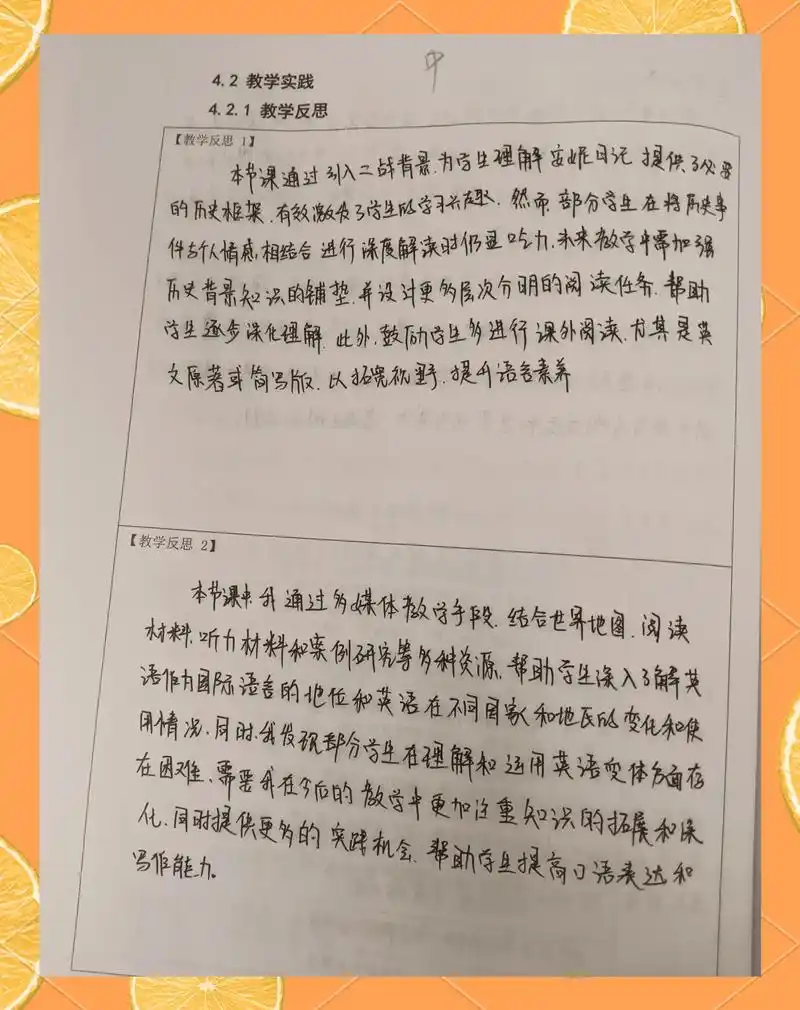 中
4.2 教学实践
4.2.1 教学反思
【教学反思 1】
本节课通过引入二战背景,为学生理解安妮日记提供了必要
的历史框架,有效激发了学生的学习兴趣。然而,部分学生在将历史事
件与个人情感相结合进行深度解读时仍显吃力,未来教学中需加强
历史背景知识的铺垫,并设计更多层次分明的阅读任务,帮助
学生逐步深化理解,此外,鼓励学生多进行课外阅读,尤其是英
文原著或简写版,以拓宽视野,提升语言素养
【教学反思 2】
本节课中,我通过多媒体教学手段,结合世界地图、阅读
材料、听力材料和案例研究等多种资源,帮助学生深入了解英
语作为国际语言的地位和英语在不同国家和地区的变化和使
用情况,同时,我发现部分学生在理解和运用英语变体方面存
在困难,需要我在今后的教学中更加注重知识的拓展和深
化,同时提供更多的实践机会,帮助学生提高口语表达和
写作能力。